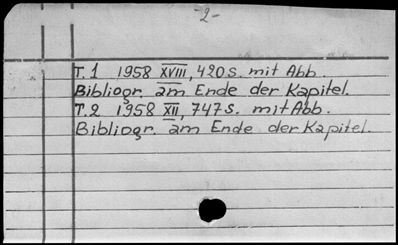 -2-
T.1 1958 XVIII, 420s. mit Abb.
Bibliogr. am Ende der Kapitel.
T.2 1958 XII, 747s. mit Abb.
Bibliogr. am Ende der Kapitel.